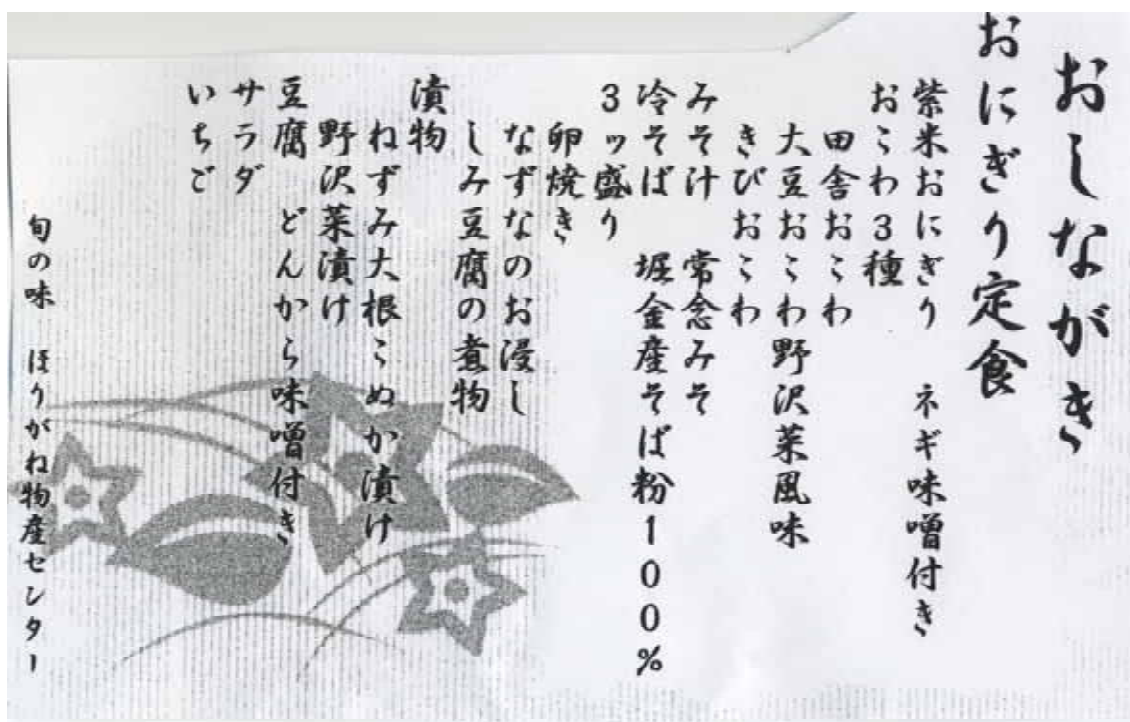 おしながき
おにぎり定食
紫米おにぎり　ネギ味噌付き
おこわ3種
田舎おこわ
大豆おこわ野沢菜風味
きびおこわ
みそ汁　常念みそ
冷そば　堀金産そば粉100%
3ッ盛り
卵焼き
なずなのお浸し
しみ豆腐の煮物
漬物
ねずみ大根こぬか漬け
野沢菜漬け
豆腐　どんから味噌付き
サラダ
いちご
旬の味　ほりがね物産センター